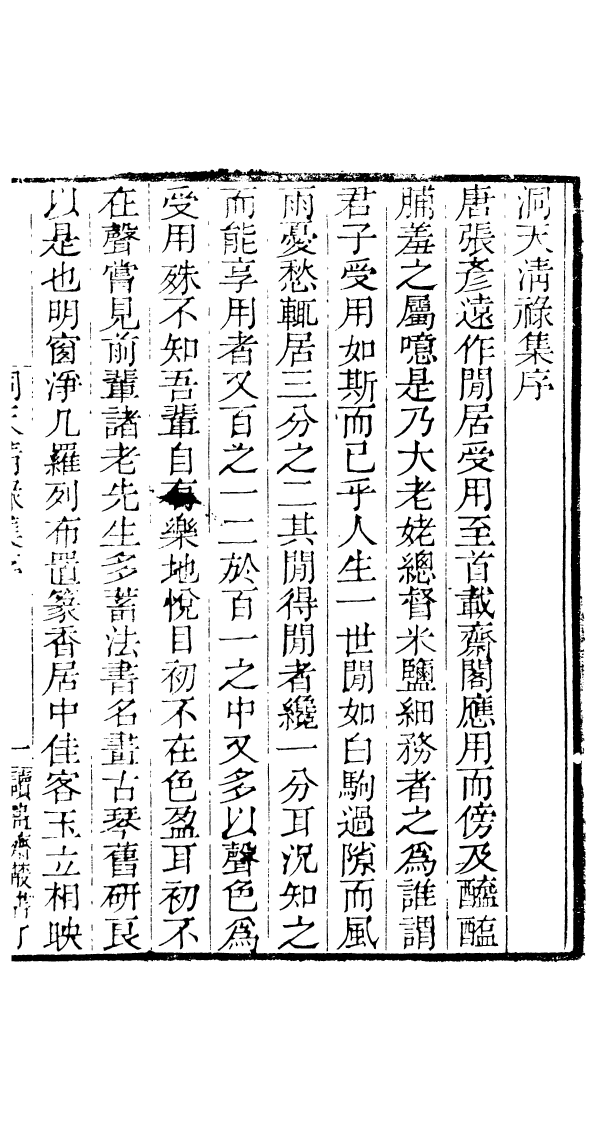 洞天清祿集序
唐張彥遠作閒居受用至首載齋閣應用而傍及醯醢
脯羞之屬噫是乃大老姥總督米鹽細務者之為誰謂
君子受用如斯而已乎人生一世間如白駒過隙而風
雨憂愁輒居三分之二其閒得閒者纔一分耳況知之
而能享用者又百之一二於百一之中又多以聲色為
受用殊不知吾輩自有樂地悅目初不在色盈耳初不
在聲嘗見前輩諸老先生多蓄法書名畫古琴舊研良
以是也明窗淨几羅列布置篆香居中佳客玉立相映
洞天清祿集序 一 讀畫齋叢書丁